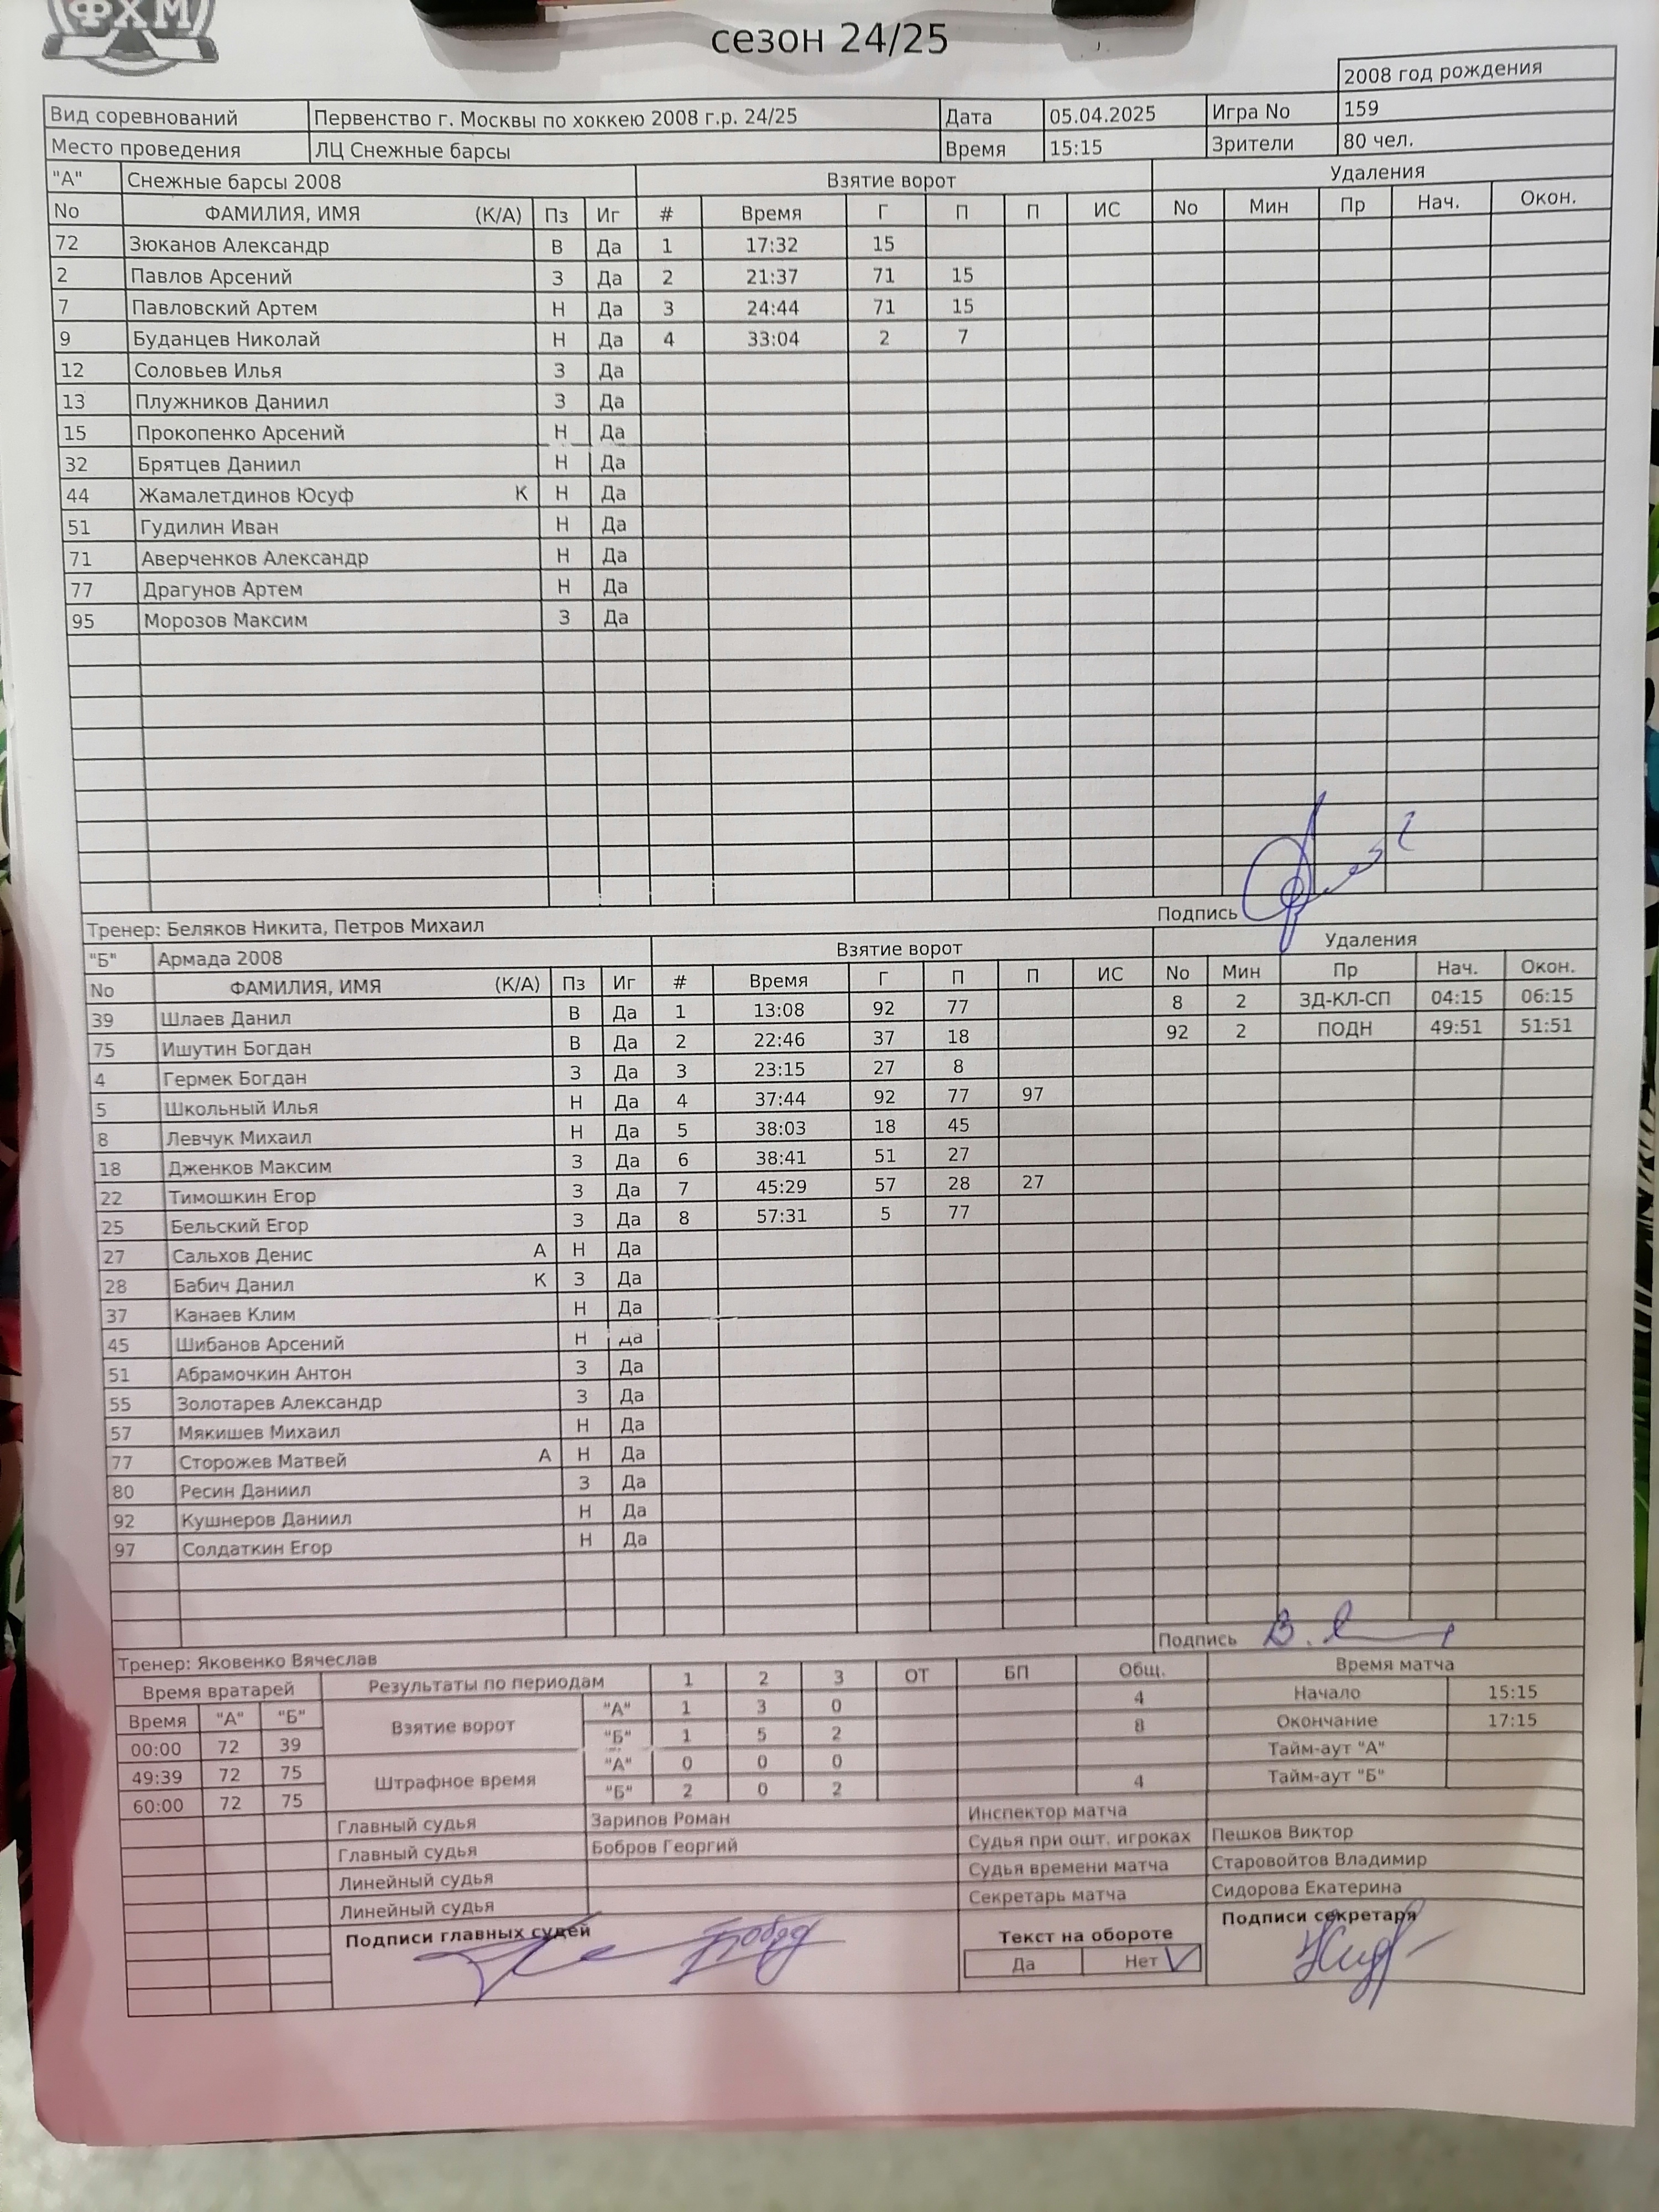 ФХМ
сезон 24/25
2008 год рождения
Вид соревнований Первенство г. Москвы по хоккею 2008 г.р. 24/25 Дата 05.04.2025 Игра No 159
Место проведения ЛЦ Снежные барсы Время 15:15 Зрители 80 чел.
"А" Снежные барсы 2008 Взятие ворот Удаления
No ФАМИЛИЯ, ИМЯ (К/А) Пз Иг # Время Г П П ИС No Мин Пр Нач. Окон.
72 Зюканов Александр В Да 1 17:32 15
2 Павлов Арсений З Да 2 21:37 71 15
7 Павловский Артем Н Да 3 24:44 71 15
9 Буданцев Николай Н Да 4 33:04 2 7
12 Соловьев Илья З Да
13 Плужников Даниил З Да
15 Прокопенко Арсений Н Да
32 Брятцев Даниил Н Да
44 Жамалетдинов Юсуф К Н Да
51 Гудилин Иван Н Да
71 Аверченков Александр Н Да
77 Драгунов Артем Н Да
95 Морозов Максим З Да
Тренер: Беляков Никита, Петров Михаил Подпись
"Б" Армада 2008 Взятие ворот Удаления
No ФАМИЛИЯ, ИМЯ (К/А) Пз Иг # Время Г П П ИС No Мин Пр Нач. Окон.
39 Шлаев Данил В Да 1 13:08 92 77 8 2 ЗД-КЛ-СП 04:15 06:15
75 Ишутин Богдан В Да 2 22:46 37 18 92 2 ПОДН 49:51 51:51
4 Гермек Богдан З Да 3 23:15 27 8
5 Школьный Илья Н Да 4 37:44 92 77 97
8 Левчук Михаил Н Да 5 38:03 18 45
18 Дженков Максим З Да 6 38:41 51 27
22 Тимошкин Егор З Да 7 45:29 57 28 27
25 Бельский Егор З Да 8 57:31 5 77
27 Сальхов Денис А Н Да
28 Бабич Данил К З Да
37 Канаев Клим Н Да
45 Шибанов Арсений Н Да
51 Абрамочкин Антон З Да
55 Золотарев Александр З Да
57 Мякишев Михаил Н Да
77 Сторожев Матвей А Н Да
80 Ресин Даниил З Да
92 Кушнеров Даниил Н Да
97 Солдаткин Егор Н Да
Тренер: Яковенко Вячеслав Подпись
Время вратарей Результаты по периодам 1 2 3 ОТ БП Общ. Время матча
Время "А" "Б" Взятие ворот "А" 1 3 0 4 Начало 15:15
00:00 72 39 "Б" 1 5 2 8 Окончание 17:15
49:39 72 75 Штрафное время "А" 0 0 0 Тайм-аут "А"
60:00 72 75 "Б" 2 0 2 4 Тайм-аут "Б"
Главный судья Зарипов Роман Инспектор матча
Главный судья Бобров Георгий Судья при ошт. игроках Пешков Виктор
Линейный судья Судья времени матча Старовойтов Владимир
Линейный судья Секретарь матча Сидорова Екатерина
Подписи главных судей Текст на обороте Подписи секретаря
Да Нет